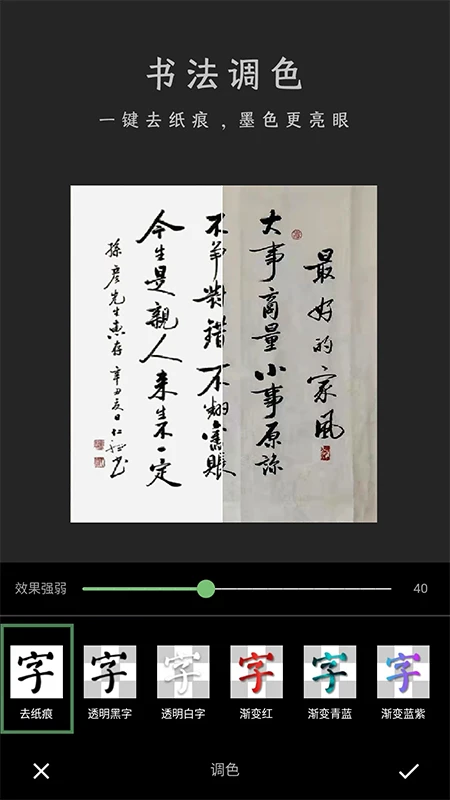 书法调色
一键去纸痕，墨色更亮眼
最好的家风
大事商量小事原谅
不争对错不翻旧账
今生是亲人来生不一定
孙彦先生惠存辛丑夏日仁
效果强弱
40
字
字
字
字
字
字
去纸痕
透明黑字
透明白字
渐变红
渐变青蓝
渐变蓝紫
调色